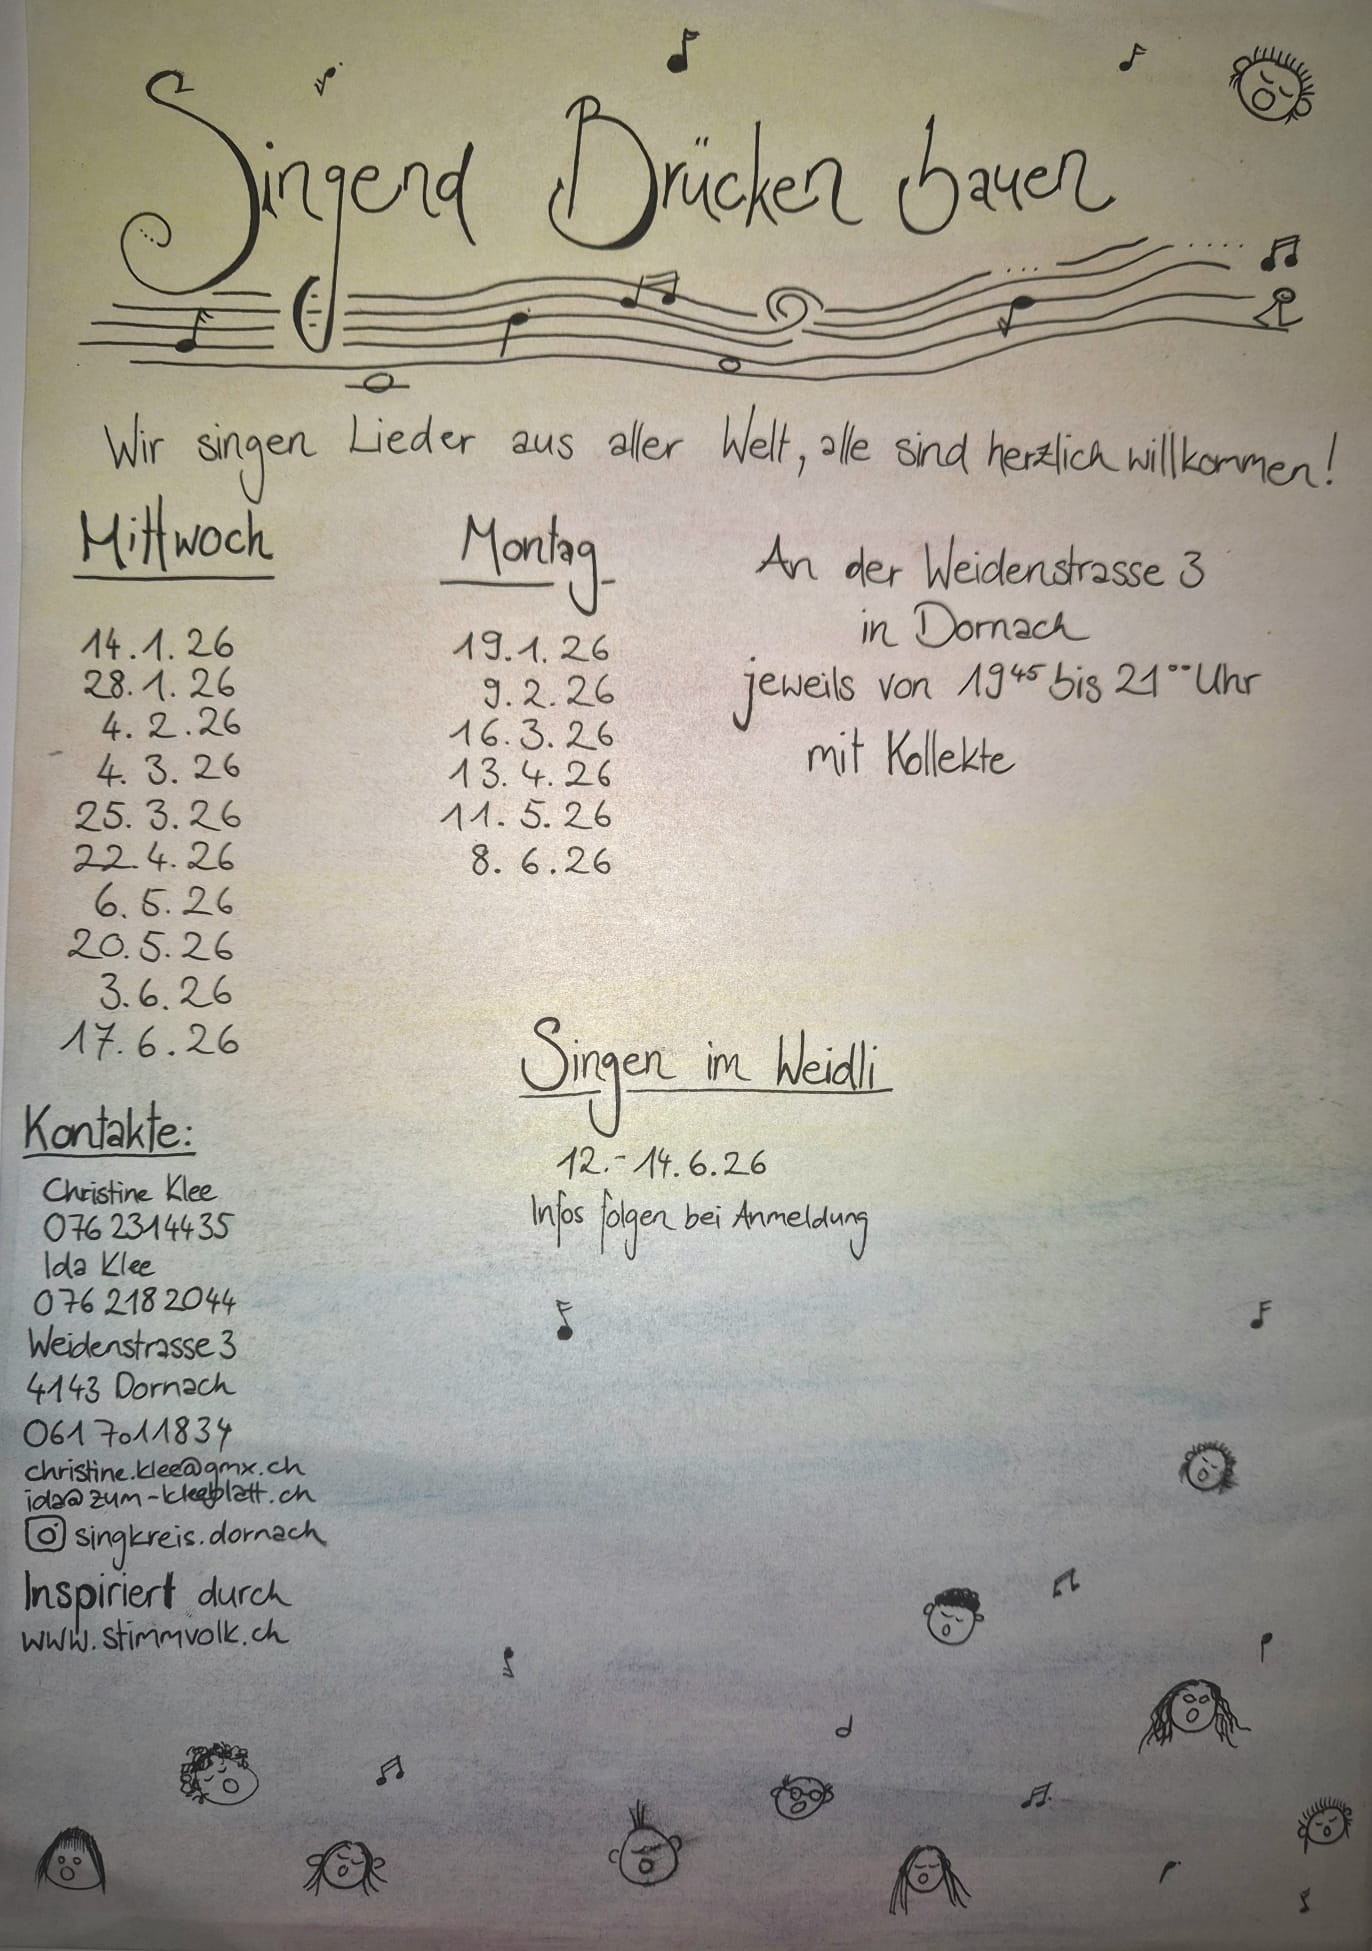 Singend Brücken bauen
Wir singen Lieder aus aller Welt, alle sind herzlich willkommen!
Mittwoch
14.1.26
28.1.26
4.2.26
4.3.26
25.3.26
22.4.26
6.5.26
20.5.26
3.6.26
17.6.26
Montag
19.1.26
9.2.26
16.3.26
13.4.26
11.5.26
8.6.26
An der Weidenstrasse 3
in Dornach
jeweils von 19⁴⁵ bis 21⁰⁰ Uhr
mit Kollekte
Singen im Weidli
12.-14.6.26
Infos folgen bei Anmeldung
Kontakte:
Christine Klee
076 2314435
Ida Klee
076 218 2044
Weidenstrasse 3
4143 Dornach
061 7011834
christine.klee@gmx.ch
ida@zum-kleeblatt.ch
singkreis.dornach
Inspiriert durch
www.stimmvolk.ch